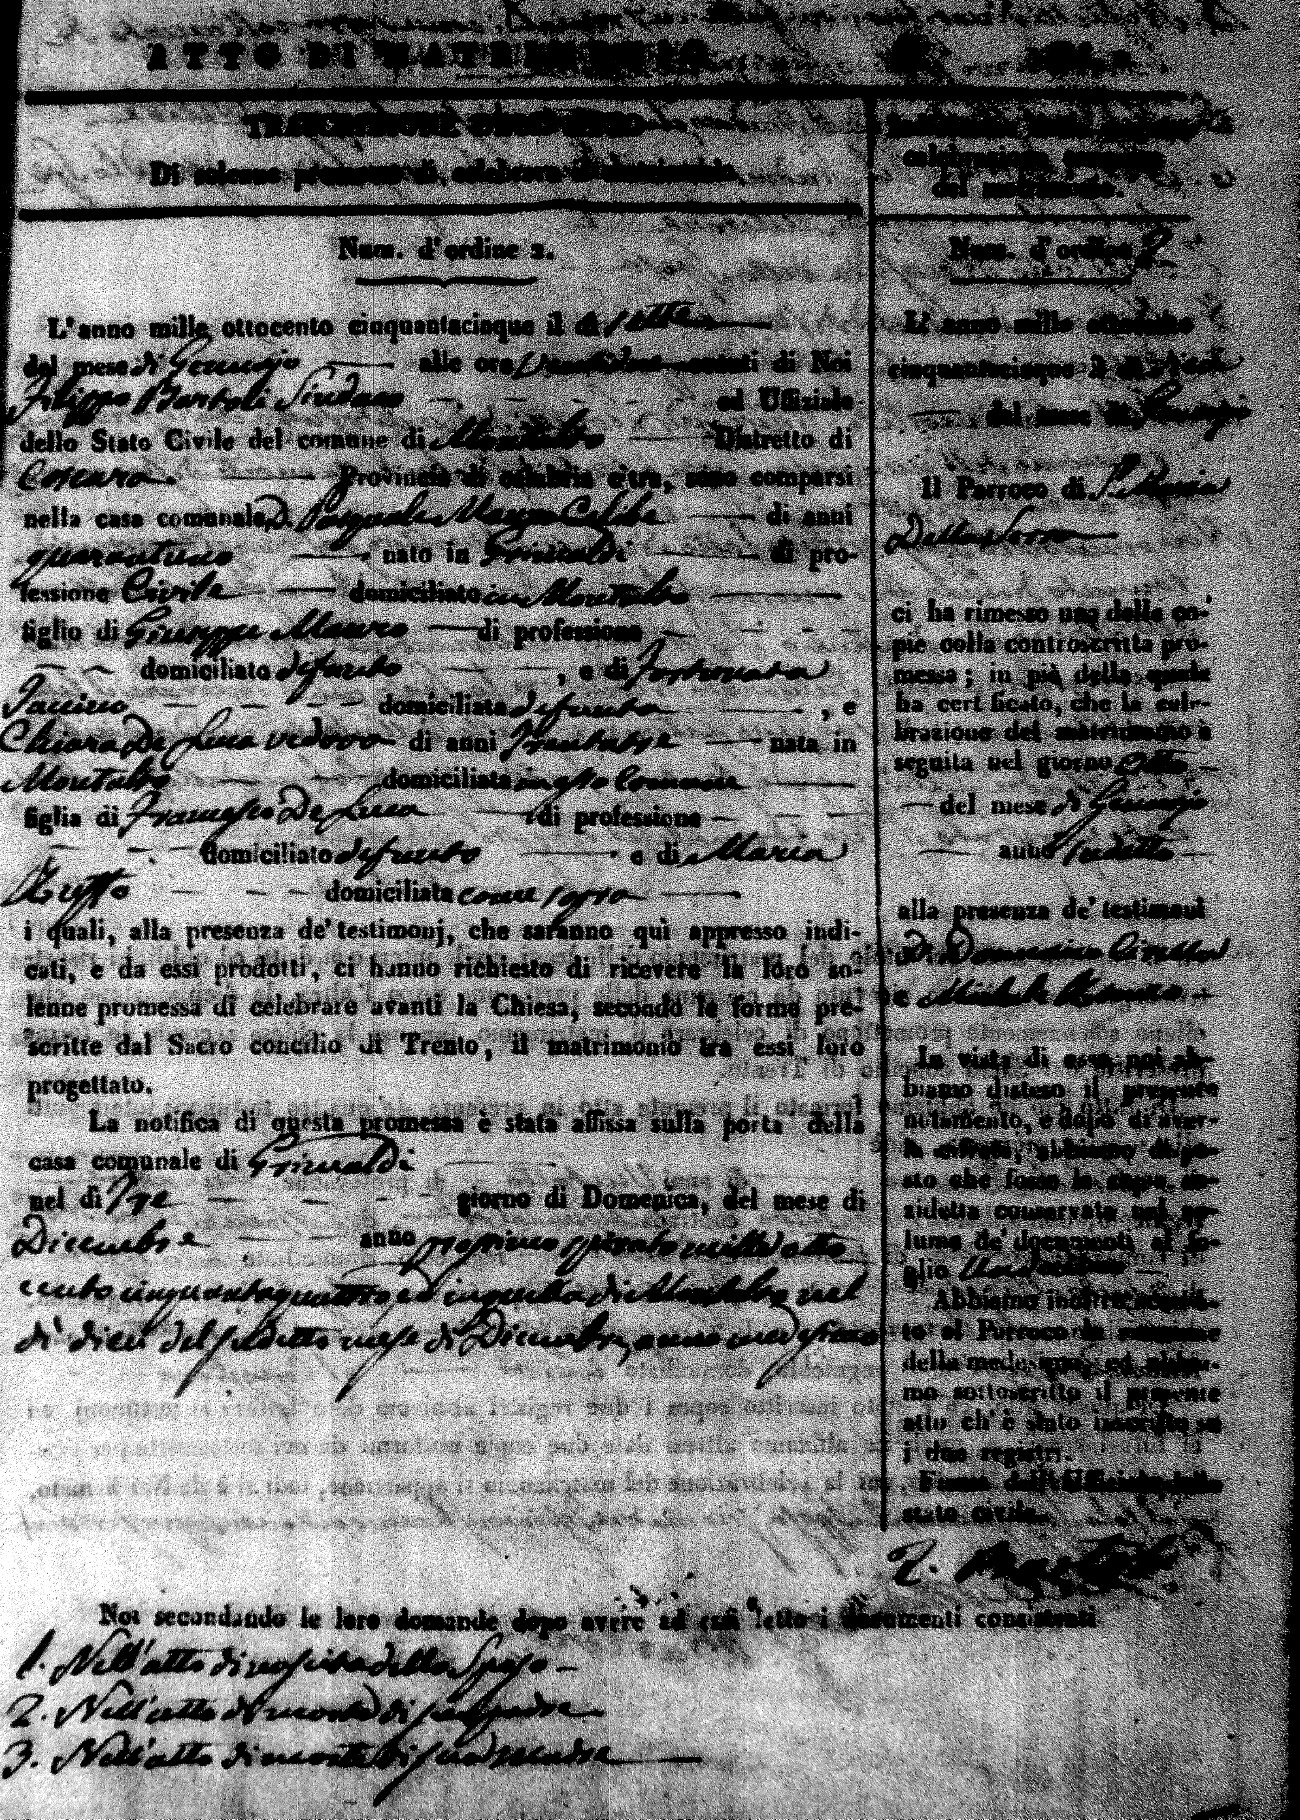 ATTO DI MATRIMONIO
Di solenne promessa di celebrare il matrimonio.
Num. d'ordine 2.
L'anno mille ottocento cinquantacinque il dì sette
del mese di Gennajo alle ore avanti di Noi
Filippo Bartoli Sindaco ed Uffiziale
dello Stato Civile del comune di Montalto Distretto di
Cosenza. Provincia di calabria citra, sono comparsi
nella casa comunale D. Pasquale Mauro Calde di anni
quarantuno nato in Grimaldi di pro-
fessione Civile domiciliato in Montalto
figlio di Giuseppe Mauro di professione
domiciliato defunto , e di Fortunata
Iacino domiciliata defunta , e
Chiara De Luca vedova di anni trentatre nata in
Montalto domiciliata in esso Comune
figlia di Francesco De Luca di professione
domiciliato defunto e di Maria
domiciliata come sopra
i quali, alla presenza de' testimonj, che saranno quì appresso indi-
cati, e da essi prodotti, ci hanno richiesto di ricevere la loro so-
lenne promessa di celebrare avanti la Chiesa, secondo le forme pre-
scritte dal Sacro concilio di Trento, il matrimonio tra essi loro
progettato.
La notifica di questa promessa è stata affissa sulla porta della
casa comunale di Grimaldi
nel dì Tre giorno di Domenica, del mese di
Dicembre anno prossimo spirato mille otto
cento cinquantaquattro ed in quella di Montalto nel
dì dieci del suddetto mese di Dicembre, anno medesimo
celebrazione
del matrimonio.
Num. d'ordine 2.
L'anno mille ottocento
cinquantacinque il dì
del mese di Gennajo
Il Parroco di S. Maria
Della Serra
ci ha rimesso una delle co-
pie colla controscritta pro-
messa; in piè della quale
ha certificato, che la cele-
brazione del matrimonio è
seguita nel giorno otto
del mese di Gennajo
anno sudetto
alla presenza de' testimonj
di Domenico
e Michele
In vista di essa noi ab-
biamo disteso il presente
notamento, e dopo di aver-
la cifrata, abbiamo dispo-
sto che fosse la copia su-
ridetta conservata nel vo-
lume de' documenti al fo-
glio
Abbiamo inoltre
to al Parroco la
della medesima, ed abbia-
mo sottoscritto il presente
atto ch'è stato inscritto su
i due registri.
Firma dell'Uffiziale dello
stato civile.
F. Bartoli
Noi secondando le loro domande dopo avere ad essi letto i documenti consistenti
1. Nell'atto di nascita dello Sposo
2. Nell'atto di morte di suo padre
3. Nell'atto di morte di sua madre